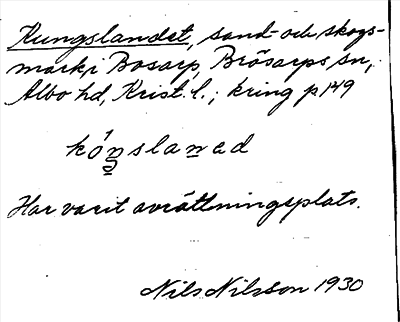 Kungslandet, sand- och skogs-
mark, i Bosarp, Brösarps sn,
Albo hd, Krist. l.; kring p 149
kóṉslaṉed
Har varit avrättningsplats.
Nils Nilsson 1930